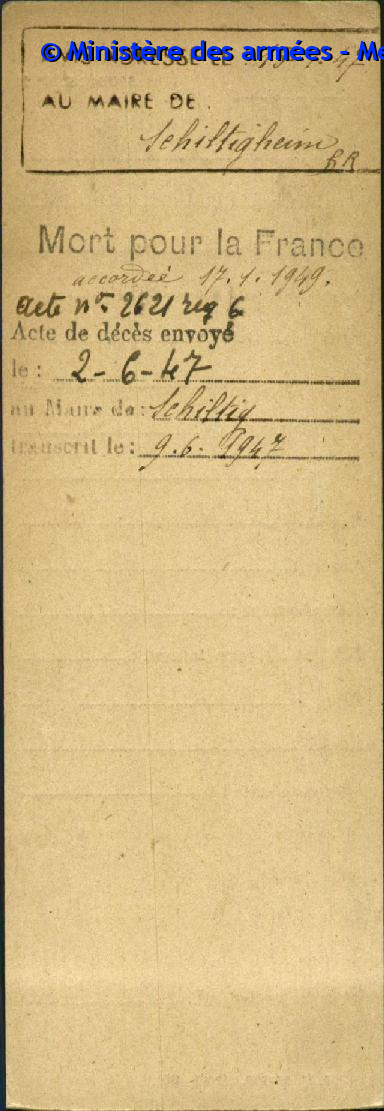 © Ministère des armées - Me
AU MAIRE DE
Schiltigheim
BR
Mort pour la France
accordée 17.1.1949.
acte n° 2621 reg 6
Acte de décès envoyé
le : 2-6-47
au Maire de : Schiltig
transcrit le : 9.6.1947